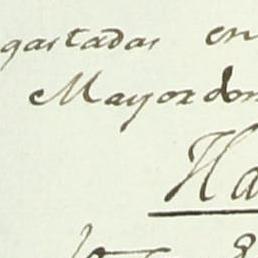 gastadas en
Mayordom
Ha